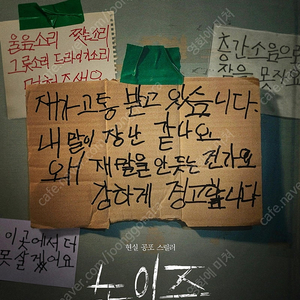 울음소리 짖는소리
그릇소리 드라이소리
층간소음으로
잠을 못자요
제가 고통 받고 있습니다.
내 말이 장난 같나요
왜 제 말을 안 듣는 건가요
강하게 경고합니다
이 곳에서 더
못 살겠어요
현실 공포 스릴러
노이즈